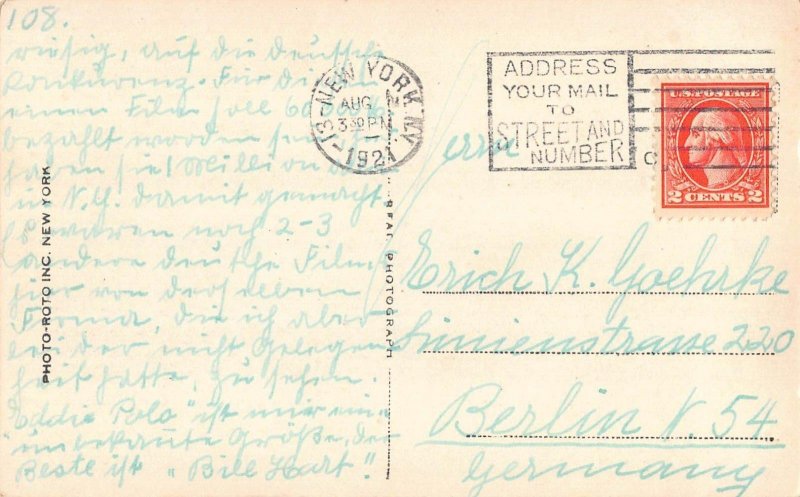 108.
riesig, auf die deutsche
Konkurenz. Für die
einen Film soll 60000
bezahlt worden sein
haben sie 1 Million
in N.Y. damit gemacht.
Es waren noch 2-3
andere deutsche Filme
hier von derselben
Firma, die ich aber
leider nicht Gelegen
heit hatte, zu sehen.
"Eddie Polo" ist mir eine
unbekannte Größe, der
Beste ist "Bill Hart".
PHOTO-ROTO INC. NEW YORK
REAL PHOTOGRAPH
NEW YORK, N.Y.
13
AUG 2
3 30 PM
1921
ADDRESS
YOUR MAIL
TO
STREET AND
NUMBER
U.S. POSTAGE
2 CENTS 2
Herrn
Erich K. Goehrke
Swinemünderstrasse 220
Berlin N. 54
Germany